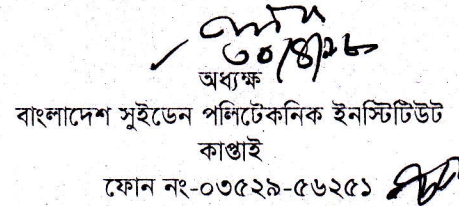 ৩০/৪/১৮
অধ্যক্ষ
বাংলাদেশ সুইডেন পলিটেকনিক ইনস্টিটিউট
কাপ্তাই
ফোন নং-০৩৫২৯-৫৬২৫১